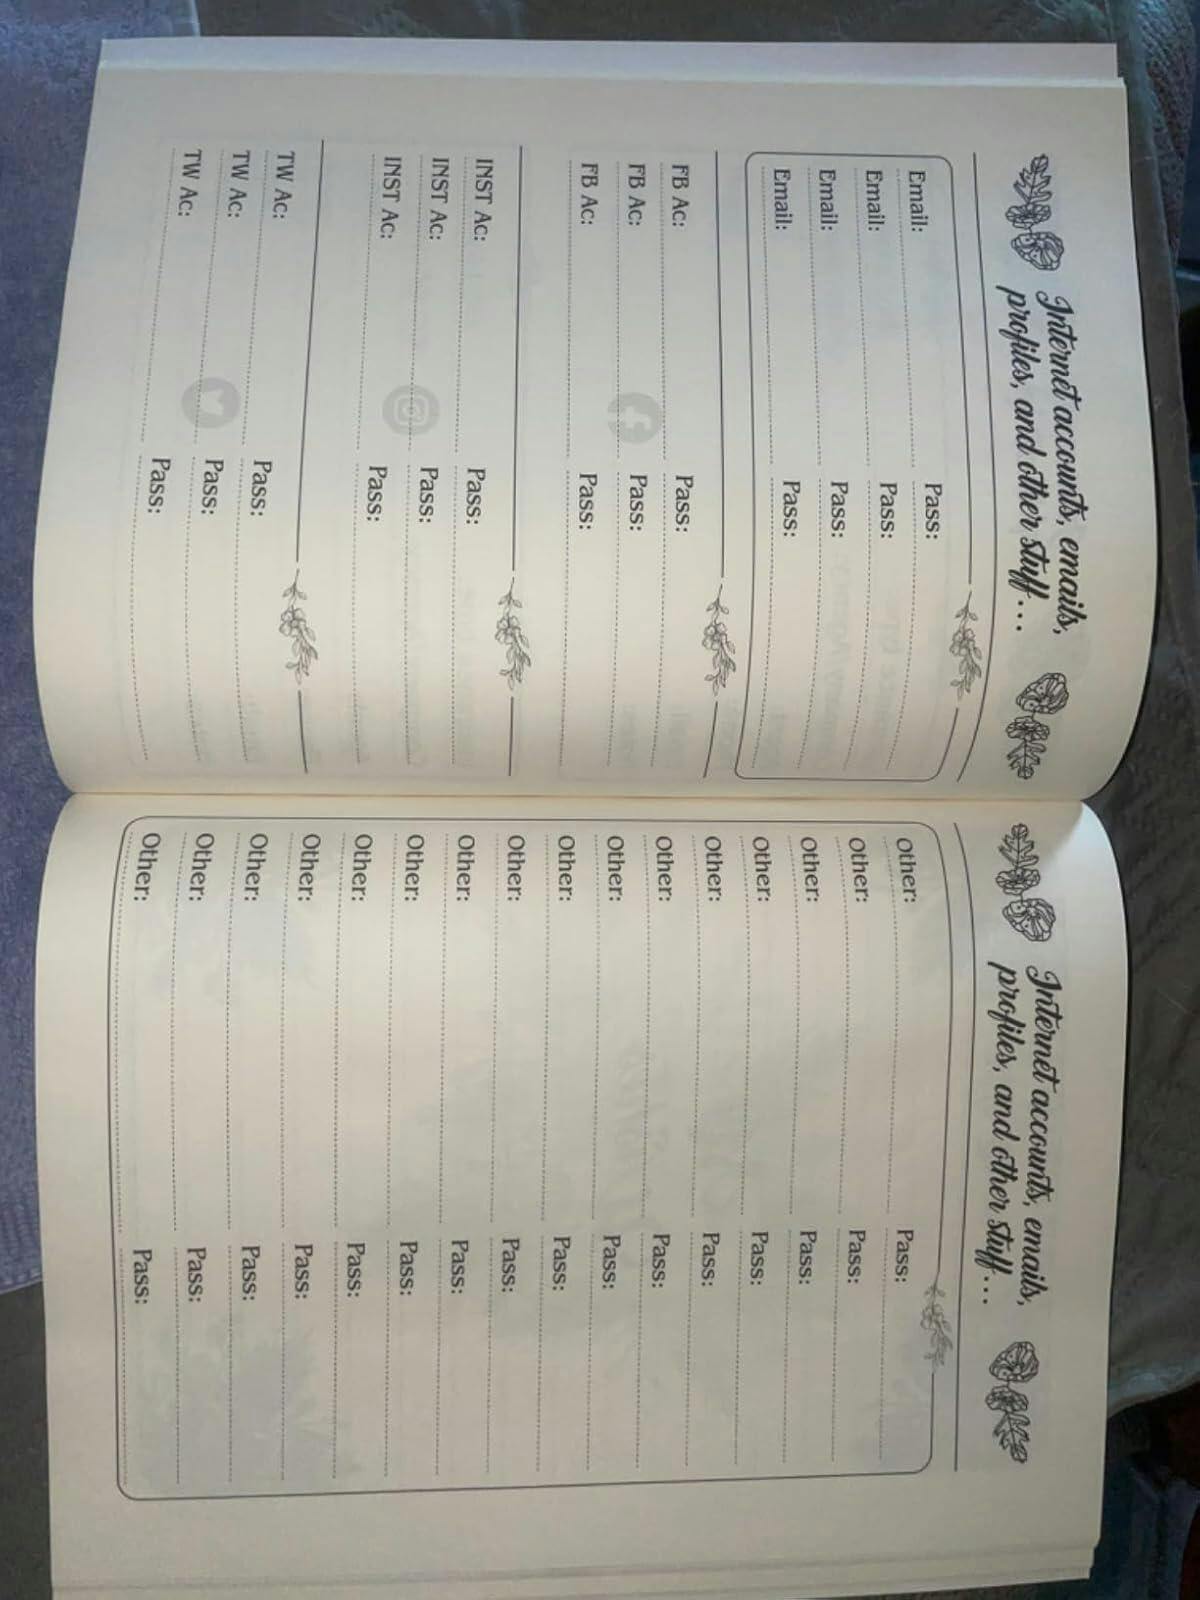 Internet accounts, emails,
profiles, and other stuff...
Email: Pass:
Email: Pass:
Email: Pass:
Email: Pass:
FB Ac: Pass:
FB Ac: Pass:
FB Ac: Pass:
INST Ac: Pass:
INST Ac: Pass:
INST Ac: Pass:
TW Ac: Pass:
TW Ac: Pass:
TW Ac: Pass:
Internet accounts, emails,
profiles, and other stuff...
Other: Pass:
Other: Pass:
Other: Pass:
Other: Pass:
Other: Pass:
Other: Pass:
Other: Pass:
Other: Pass:
Other: Pass:
Other: Pass:
Other: Pass:
Other: Pass:
Other: Pass:
Other: Pass:
Other: Pass:
Other: Pass: